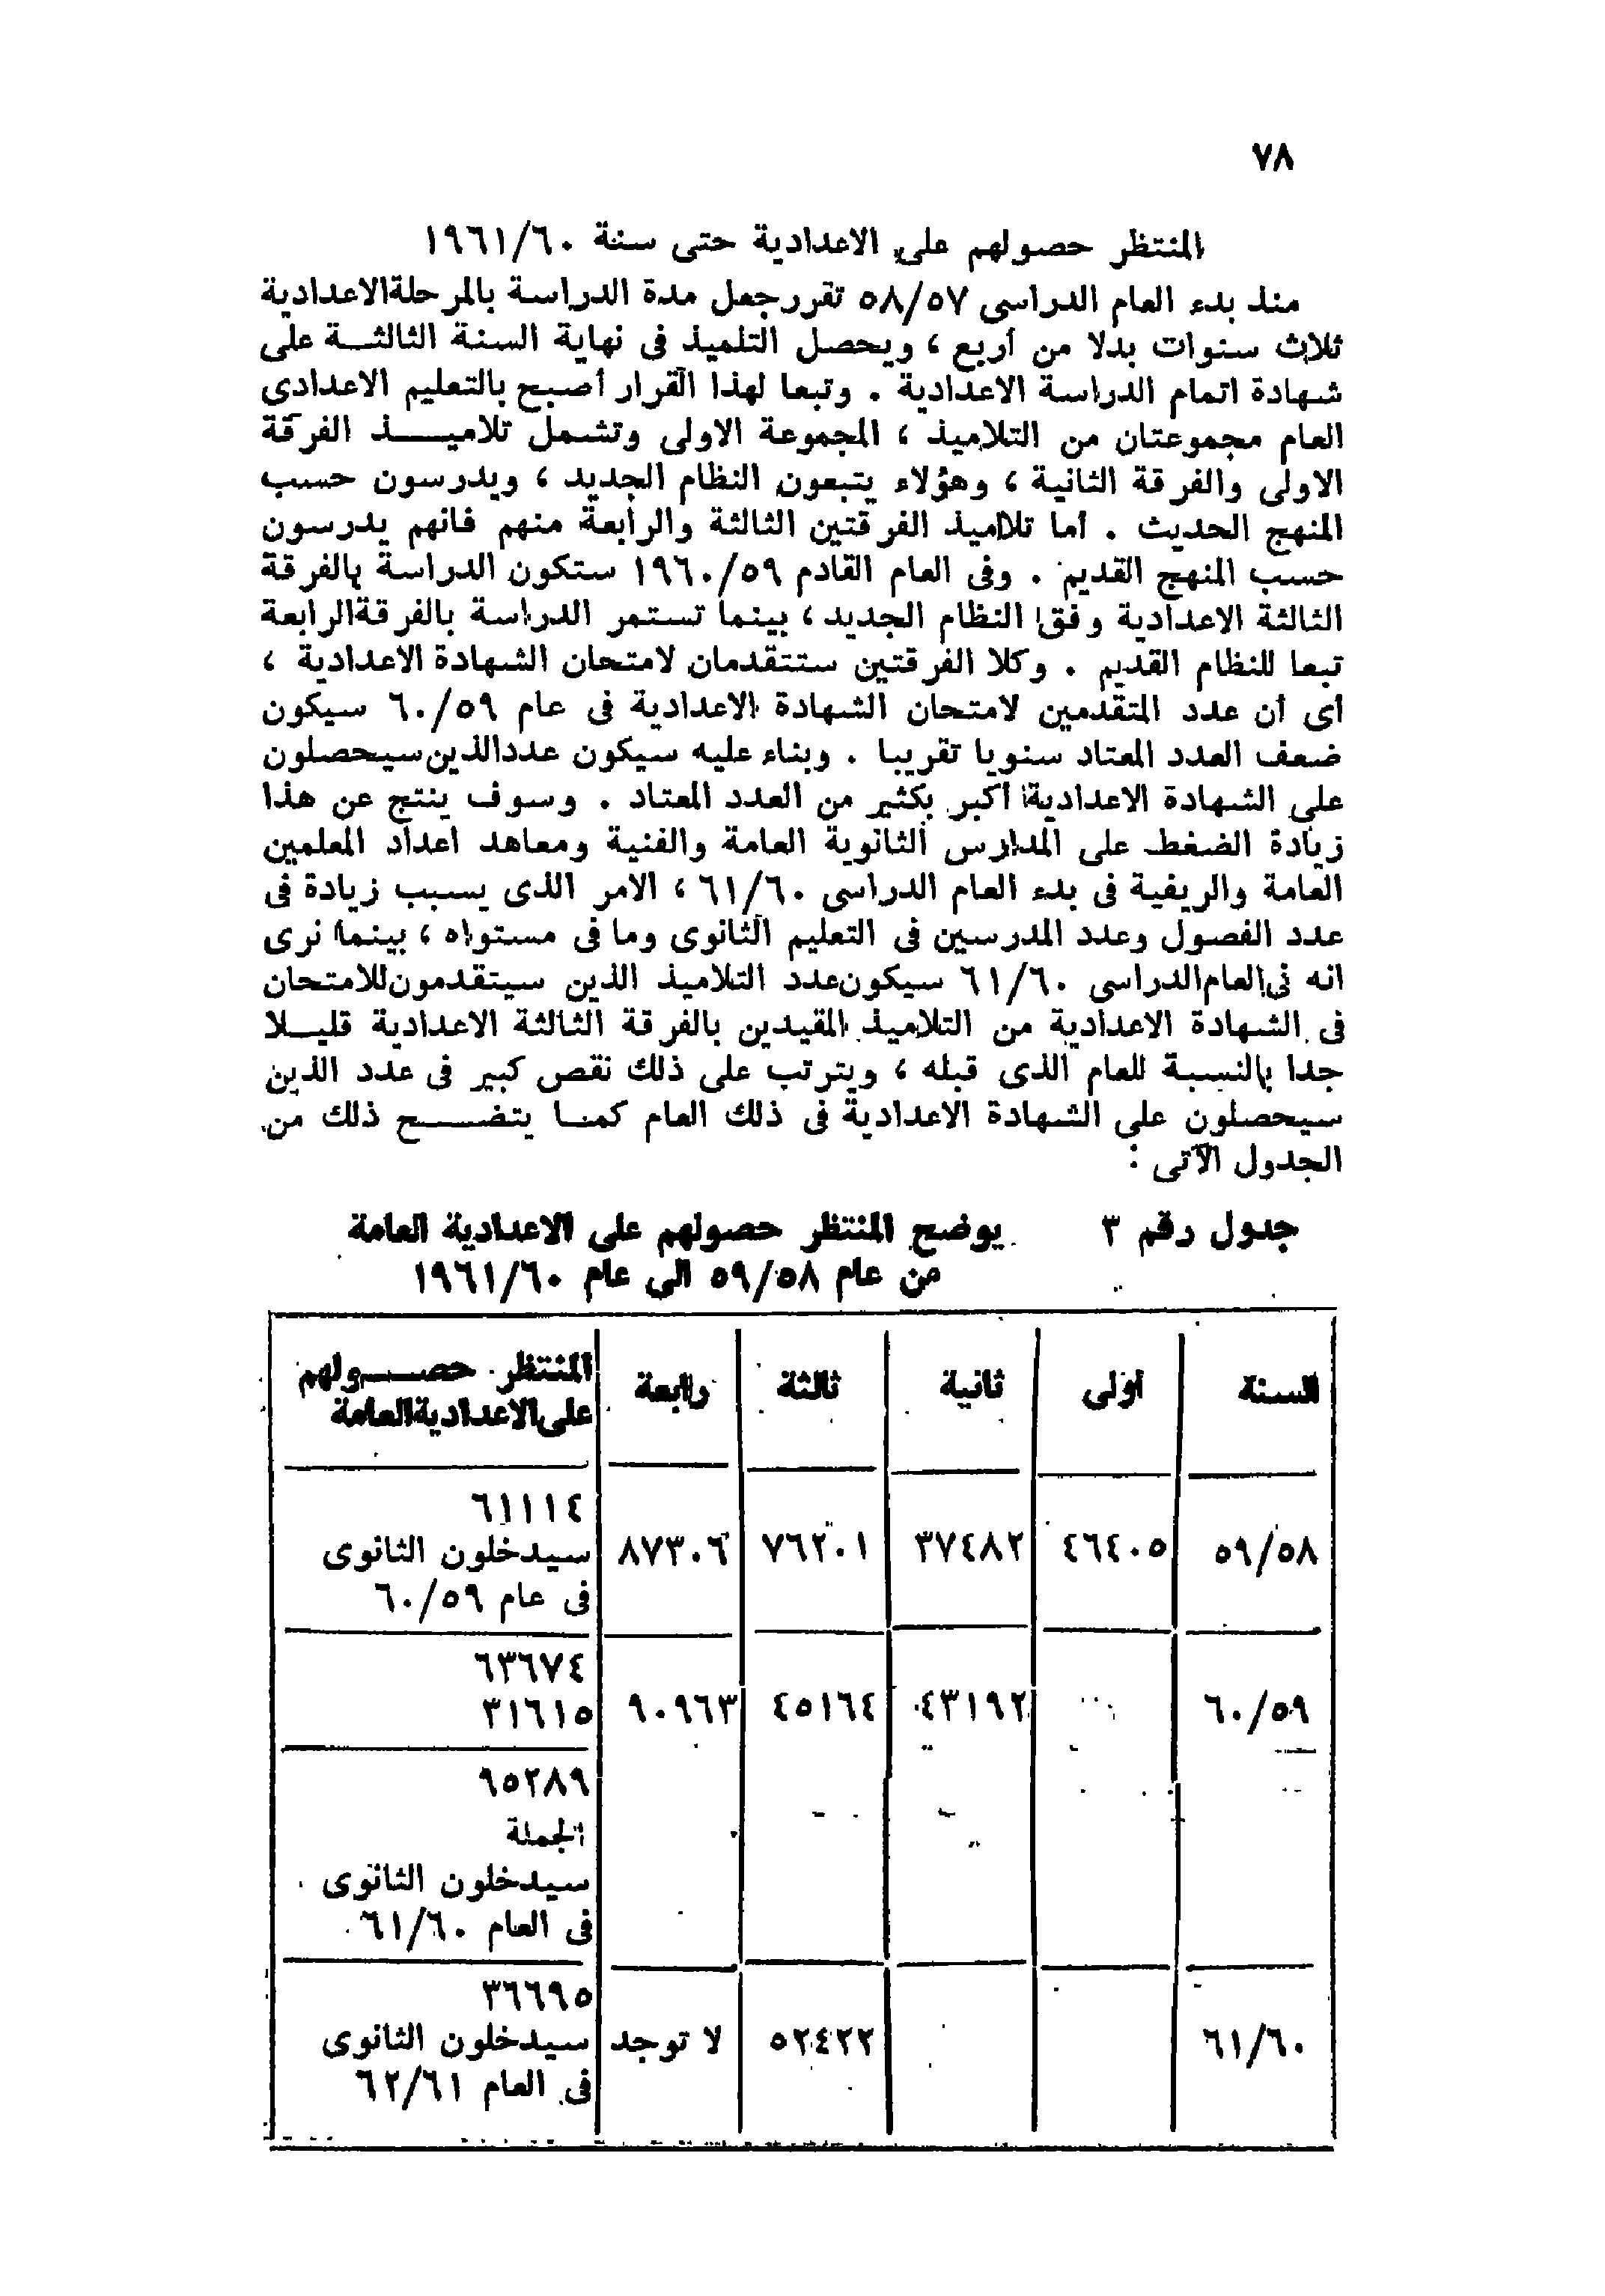 ٧٨
المنتظر حصولهم على الاعدادية حتى سنة ١٩٦١/٦٠
منذ بدء العام الدراسى ٥٨/٥٧ تقرر جعل مدة الدراسة بالمرحلة الاعدادية
ثلاث سنوات بدلا من أربع ، ويحصل التلميذ فى نهاية السنة الثالثة على
شهادة اتمام الدراسة الاعدادية . وتبعا لهذا القرار أصبح بالتعليم الاعدادى
العام مجموعتان من التلاميذ ، المجموعة الاولى وتشمل تلاميذ الفرقة
الاولى والفرقة الثانية ، وهؤلاء يتبعون النظام الجديد ، ويدرسون حسب
المنهج الحديث . أما تلاميذ الفرقتين الثالثة والرابعة منهم فانهم يدرسون
حسب المنهج القديم . وفى العام القادم ١٩٦٠/٥٩ ستكون الدراسة بالفرقة
الثالثة الاعدادية وفق النظام الجديد ، بينما تستمر الدراسة بالفرقة الرابعة
تبعا للنظام القديم . وكلا الفرقتين ستتقدمان لامتحان الشهادة الاعدادية ،
أى أن عدد المتقدمين لامتحان الشهادة الاعدادية فى عام ٦٠/٥٩ سيكون
ضعف العدد المعتاد سنويا تقريبا . وبناء عليه سيكون عدد الذين سيحصلون
على الشهادة الاعدادية أكبر بكثير من العدد المعتاد . وسوف ينتج عن هذا
زيادة الضغط على المدارس الثانوية العامة والفنية ومعاهد اعداد المعلمين
العامة والريفية فى بدء العام الدراسى ٦١/٦٠ ، الامر الذى يسبب زيادة فى
عدد الفصول وعدد المدرسين فى التعليم الثانوى وما فى مستواه ، بينما نرى
انه فى العام الدراسى ٦١/٦٠ سيكون عدد التلاميذ الذين سيتقدمون للامتحان
فى الشهادة الاعدادية من التلاميذ المقيدين بالفرقة الثالثة الاعدادية قليلا
جدا بالنسبة للعام الذى قبله ، ويترتب على ذلك نقص كبير فى عدد الذين
سيحصلون على الشهادة الاعدادية فى ذلك العام كما يتضح ذلك من
الجدول الآتى :
جدول رقم ٣ يوضح المنتظر حصولهم على الاعدادية العامة
من عام ٥٩/٥٨ الى عام ١٩٦١/٦٠
السنة أولى ثانية ثالثة رابعة المنتظر حصولهم
على الاعدادية العامة
٦١١١٤
٥٩/٥٨ ٤٦٤٠٥ ٣٧٤٨٢ ٧٦٢٠١ ٨٧٣٠٦ سيدخلون الثانوى
فى عام ٦٠/٥٩
٦٣٦٧٤
٦٠/٥٩ ٤٣١٩٢ ٤٥١٦٤ ٩٠٩٦٣ ٣١٦١٥
٩٥٢٨٩
الجملة
سيدخلون الثانوى
فى العام ٦١/٦٠
٣٦٦٩٥
٦١/٦٠ ٥٢٤٢٢ لا توجد سيدخلون الثانوى
فى العام ٦٢/٦١